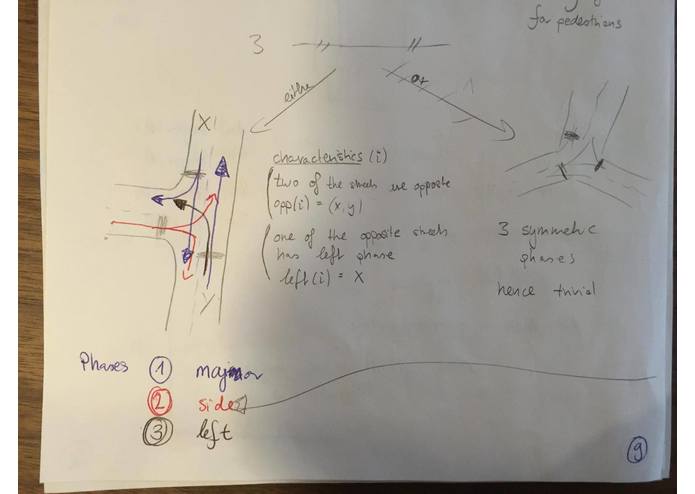 for pedestrians
3
either
or
characteristics (i)
two of the streets are opposite
opp(i) = (x,y)
one of the opposite streets
has left phase
left(i) = X
3 symmetric
phases
hence trivial
X
Y
Phases 1 major
2 side
3 left
9